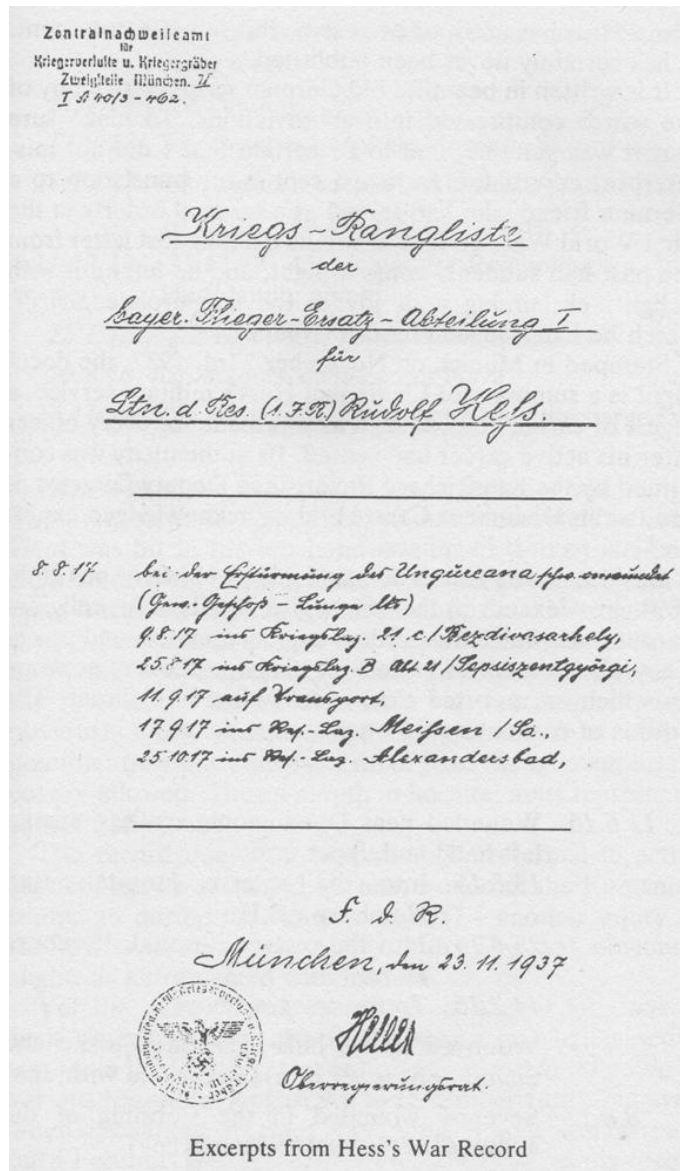 Zentralnachweiseamt
für
Kriegerverluste u. Kriegergräber
Zweigstelle München.
Kriegs-Rangliste
der
bayer. Flieger-Ersatz-Abteilung I
für
Ltn. d. Res. (1.J.R) Rudolf Heß.
8.8.17 bei der Erstürmung des Ungureana schw. verwundet
(Gew.-Geschoß - Lunge lks)
9.8.17 ins Kriegslaz. 21 c/Bezdivasarhely,
25.8.17 ins Kriegslaz B Abt 21/Sepsiszentgyörgi,
11.9.17 auf Transport,
17.9.17 ins Res.-Laz. Meißen/Sa.,
25.10.17 ins Res.-Laz. Alexandersbad,
F. d. R.
München, den 23.11.1937
Heller
Oberregierungsrat.
Excerpts from Hess's War Record